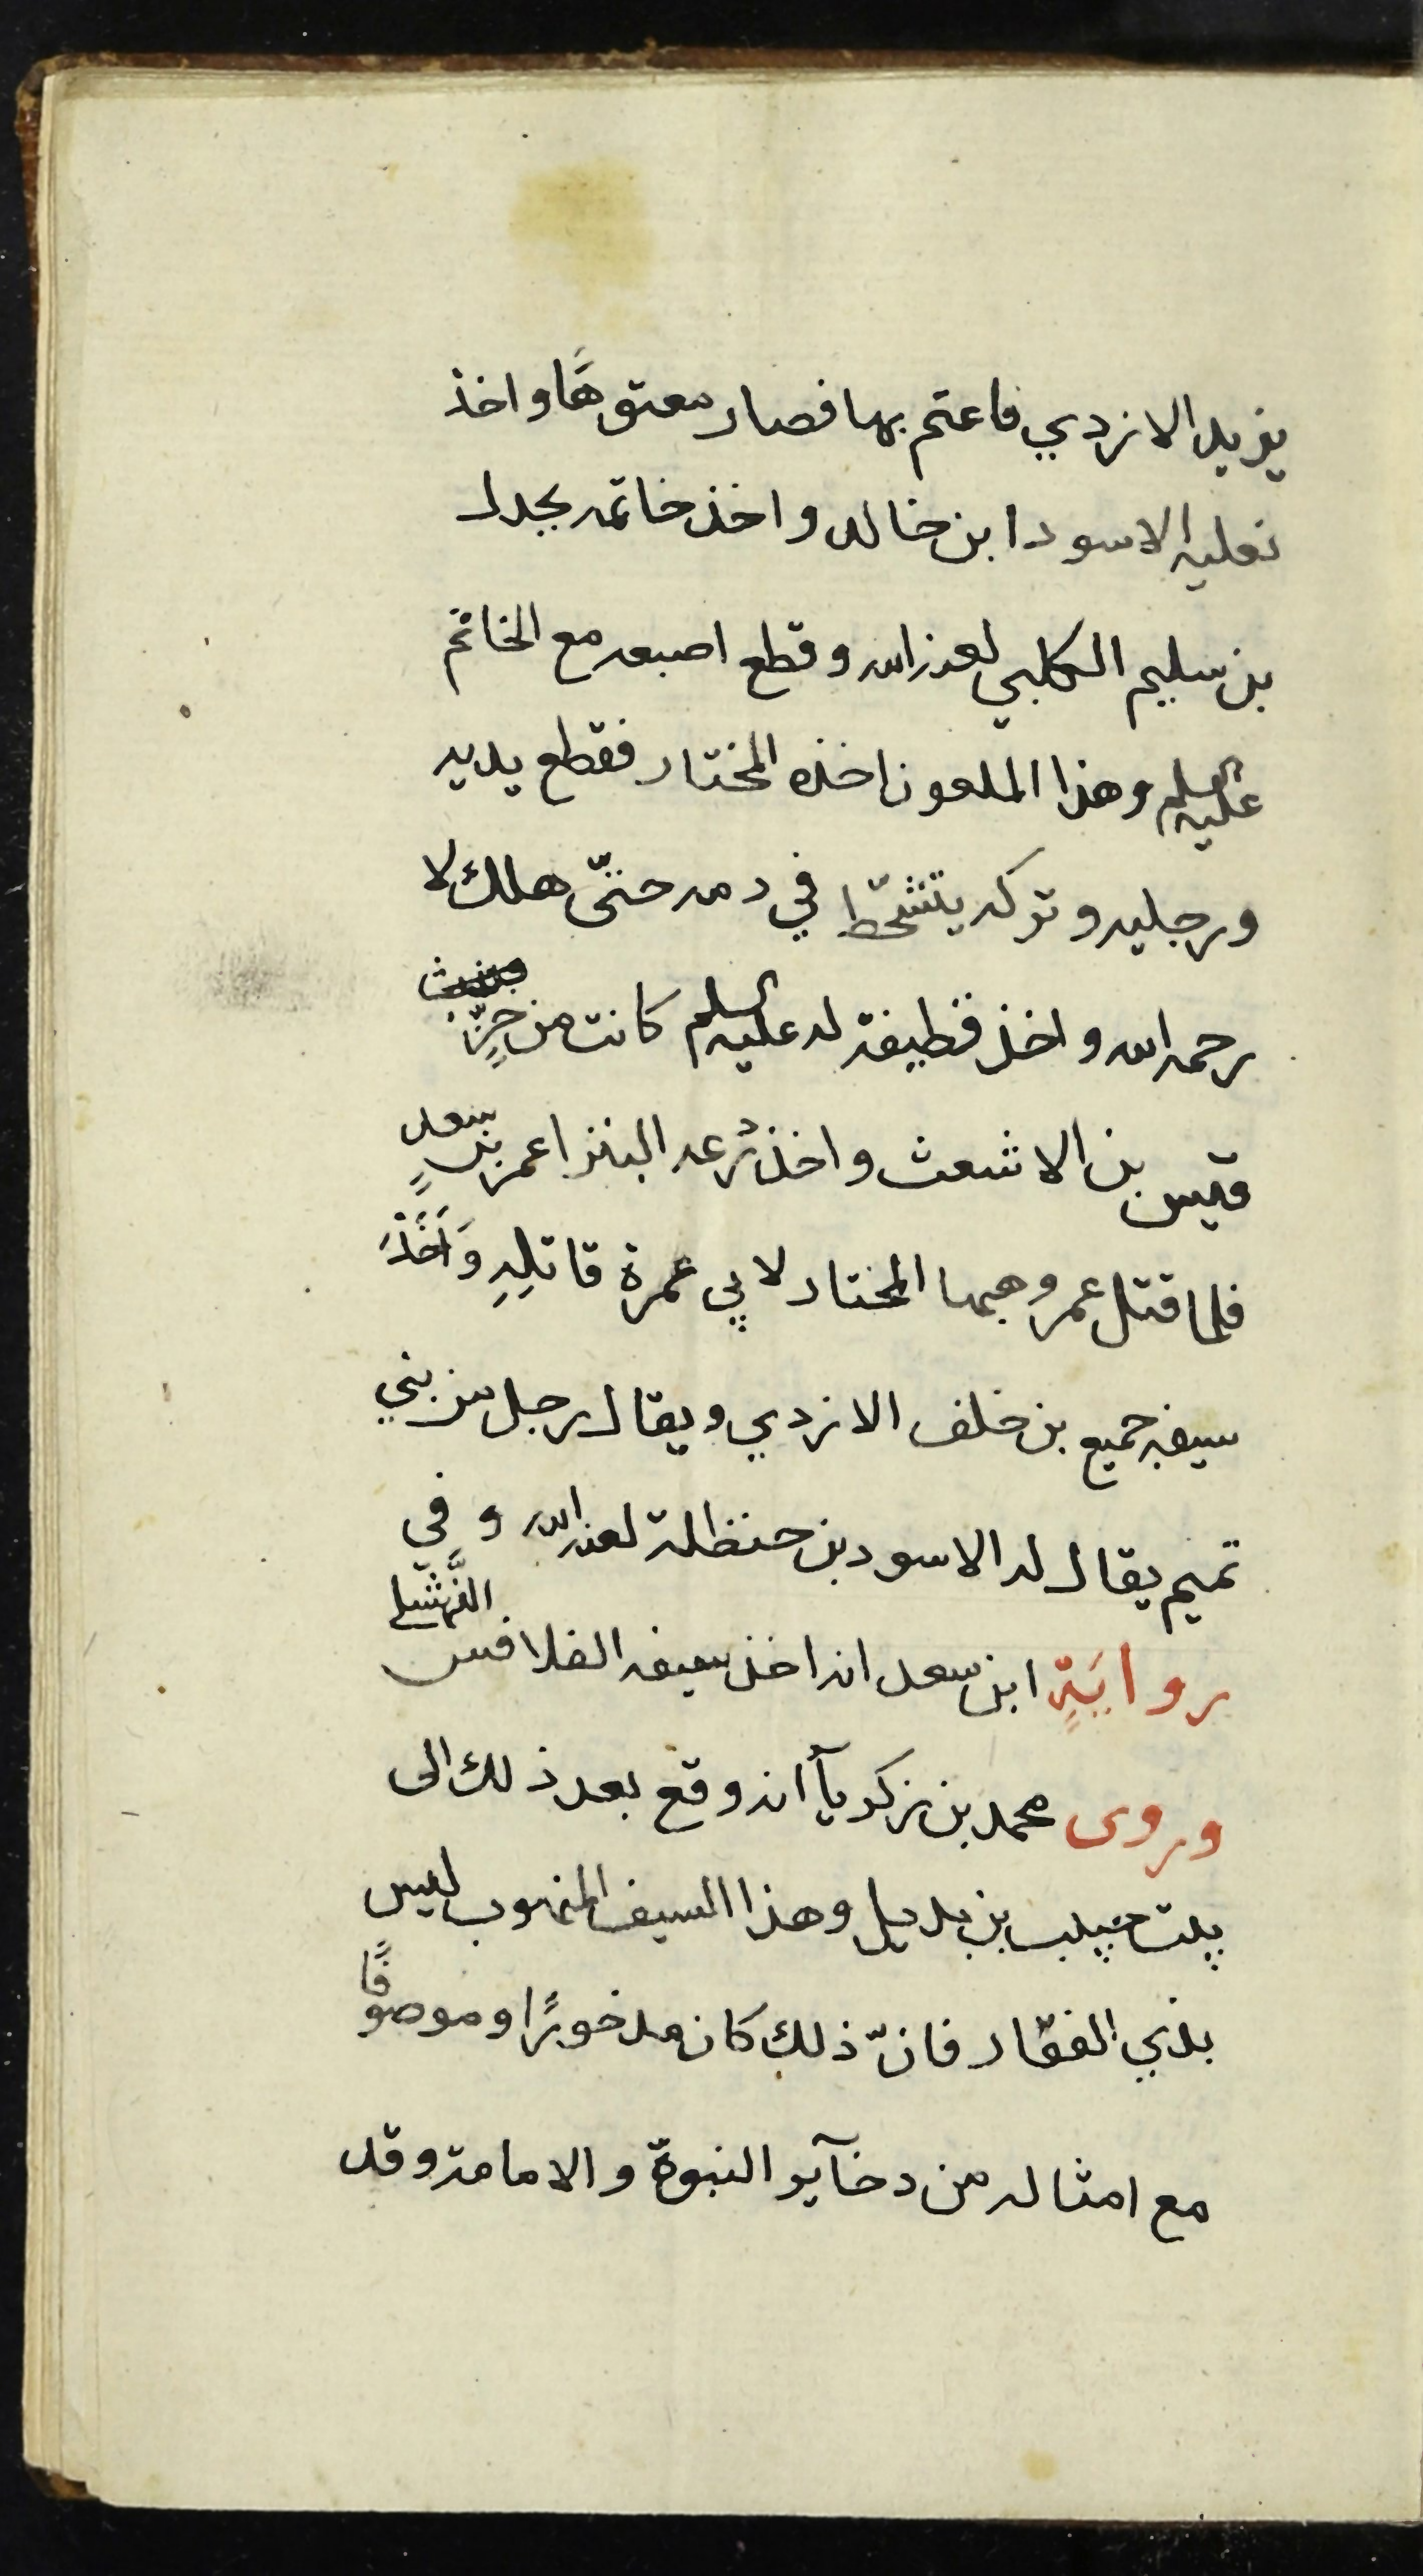 يزيد الازدي فاعتم بها فصار معتوهًا واخذ
نعليه الاسود ابن خالد واخذ خاتمه بجدل
بن سليم الكلبي لعنه الله وقطع اصبعه مع الخاتم
عليه السلم وهذا الملعون اخذه المختار فقطع يديه
ورجليه وتركه يتشحّط في دمه حتّى هلك لا
رحمه الله واخذ قطيفة له عليه السلم كانت من خزٍّ
قيس بن الاشعث واخذ درعه البتراء عمر بن سعدٍ
فلما قتل عمر وهبها المختار لابي عمرة قاتلِهِ وَاَخَذَ
سيفه جميع بن خلف الازدي ويقال رجل من بني
تميم يقال له الاسود بن حنظلة لعنه الله وفي
روايَةٍ ابن سعد انه اخذ سيفه الفلافس النَّهشَلي
وروى محمد بن زكريآ انه وقع بعد ذلك الى
بنت حبيب بن بديل وهذا السيف المنهوب ليس
بذي الفقار فانّ ذلك كان مدخورًا وموصوفًا
مع امثاله من دخآير النبوة والامامة وقد